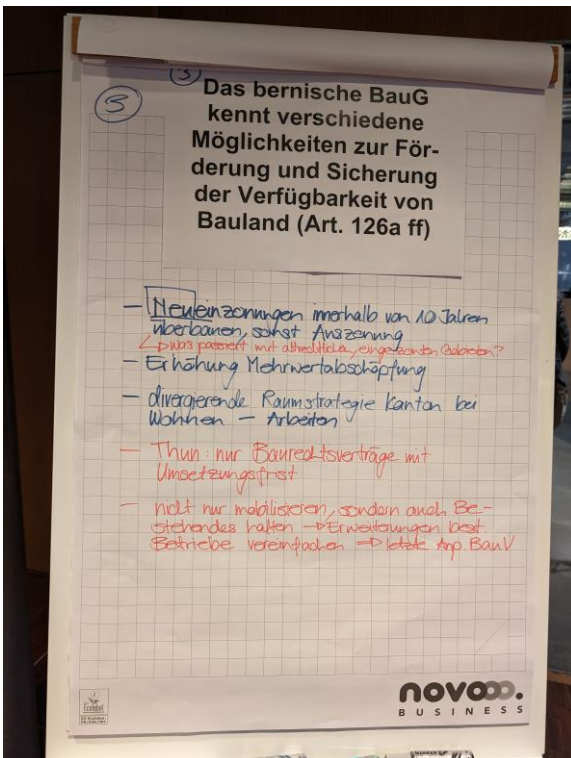 3
3
Das bernische BauG
kennt verschiedene
Möglichkeiten zur För-
derung und Sicherung
der Verfügbarkeit von
Bauland (Art. 126a ff)
- Neueinzonungen innerhalb von 10 Jahren
überbauen, sonst Auszonung
↳ was passiert mit altrechtlichen, eingezonten Gebieten?
- Erhöhung Mehrwertabschöpfung
- divergierende Raumstrategie Kanton bei
Wohnen - Arbeiten
- Thun: nur Baurechtsverträge mit
Umsetzungsfrist
- nicht nur mobilisieren, sondern auch Be-
stehendes halten → Erweiterungen best
Betriebe vereinfachen → letzte Anp. BauV
novooo.
BUSINESS
Ecolabel